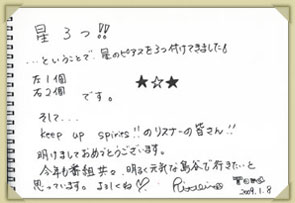 星3つ!!
…ということで、星のピアスを3つ付けてきました!
左1個
右2個 です。
★☆★
そして…
keep up spirits!!のリスナーの皆さん!!
明けましておめでとうございます。
今年も番組共々、明るく元気な島谷で行きたいと
思っています。よろしくね♡
2009.1.8